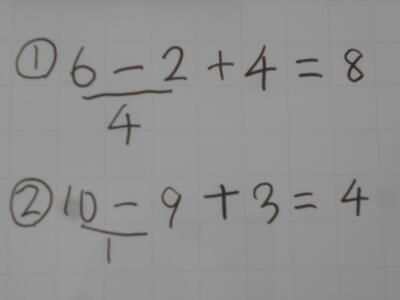 ① 6 - 2 + 4 = 8
4
② 10 - 9 + 3 = 4
1